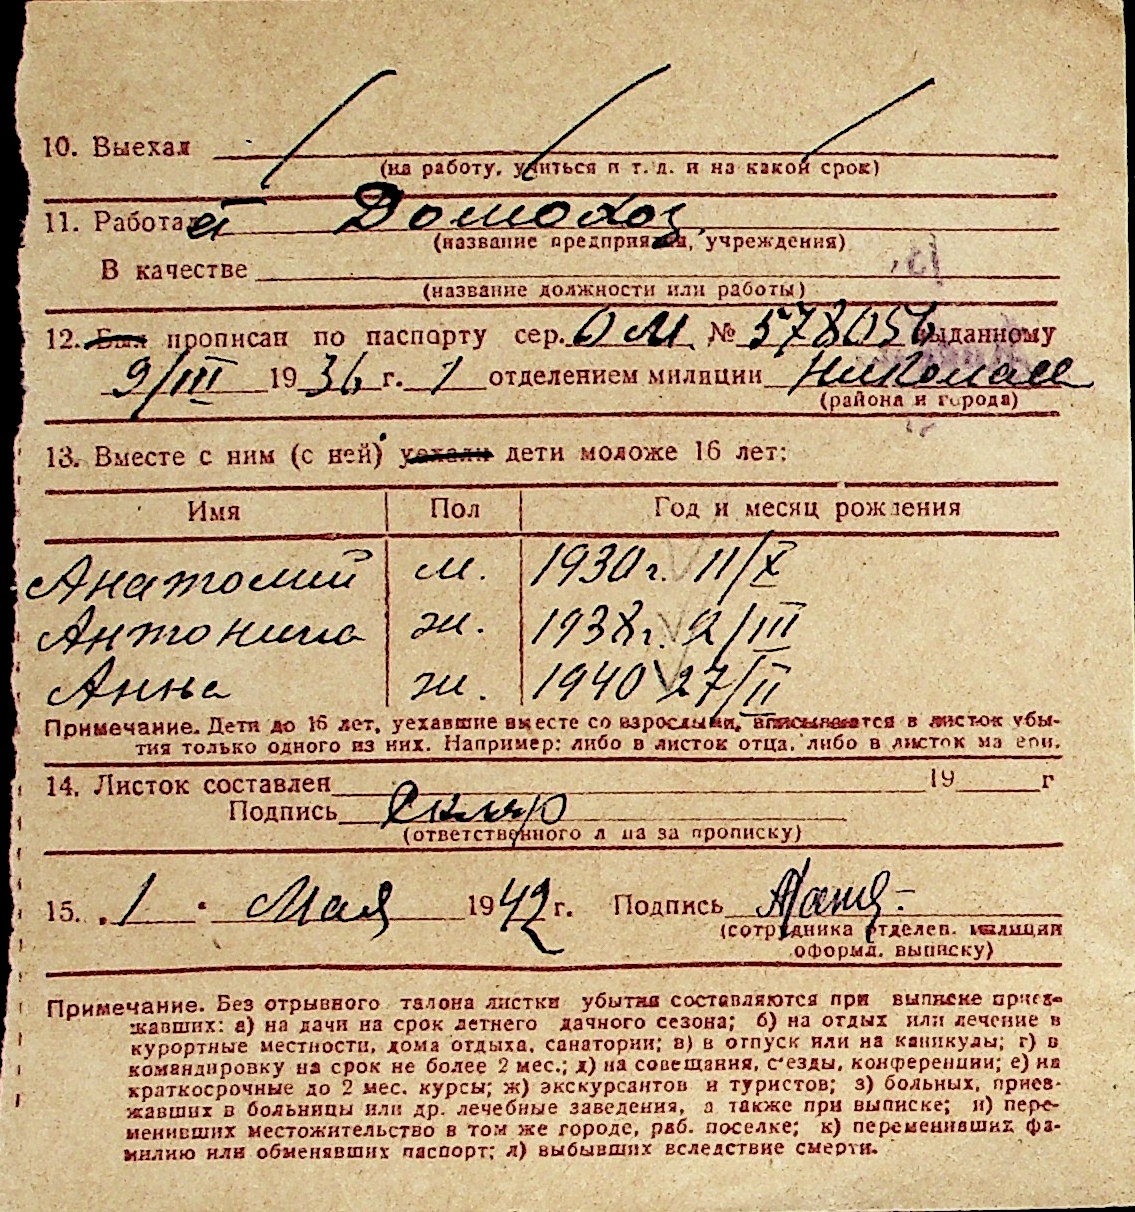 10. Выехал
(на работу, учиться и т. д. и на какой срок)
11. Работает Домохоз.
(название предприятия, учреждения)
В качестве
(название должности или работы)
12. Был прописан по паспорту сер. ОМ № 578056 выданному
9/III 1936 г. 1 отделением милиции Николаев
(района и города)
13. Вместе с ним (с ней) уехали дети моложе 16 лет:
Имя Пол Год и месяц рождения
Анатолий м. 1930 г. 11/X
Антонина ж. 1938 г. 2/III
Анна ж. 1940 27/II
Примечание. Дети до 16 лет, уехавшие вместе со взрослыми, вписываются в листок убы-
тия только одного из них. Например: либо в листок отца, либо в листок матери.
14. Листок составлен 19 г
Подпись Скляр
(ответственного лица за прописку)
15. 1 Мая 1942 г. Подпись
(сотрудника отделен. милиции
оформл. выписку)
Примечание. Без отрывного талона листки убытия составляются при выписке приез-
жавших: а) на дачи на срок летнего дачного сезона; б) на отдых или лечение в
курортные местности, дома отдыха, санатории; в) в отпуск или на каникулы; г) в
командировку на срок не более 2 мес.; д) на совещания, с'езды, конференции; е) на
краткосрочные до 2 мес. курсы; ж) экскурсантов и туристов; з) больных, приез-
жавших в больницы или др. лечебные заведения, а также при выписке; и) пере-
менивших местожительство в том же городе, раб. поселке; к) переменивших фа-
милию или обменявших паспорт; л) выбывших вследствие смерти.